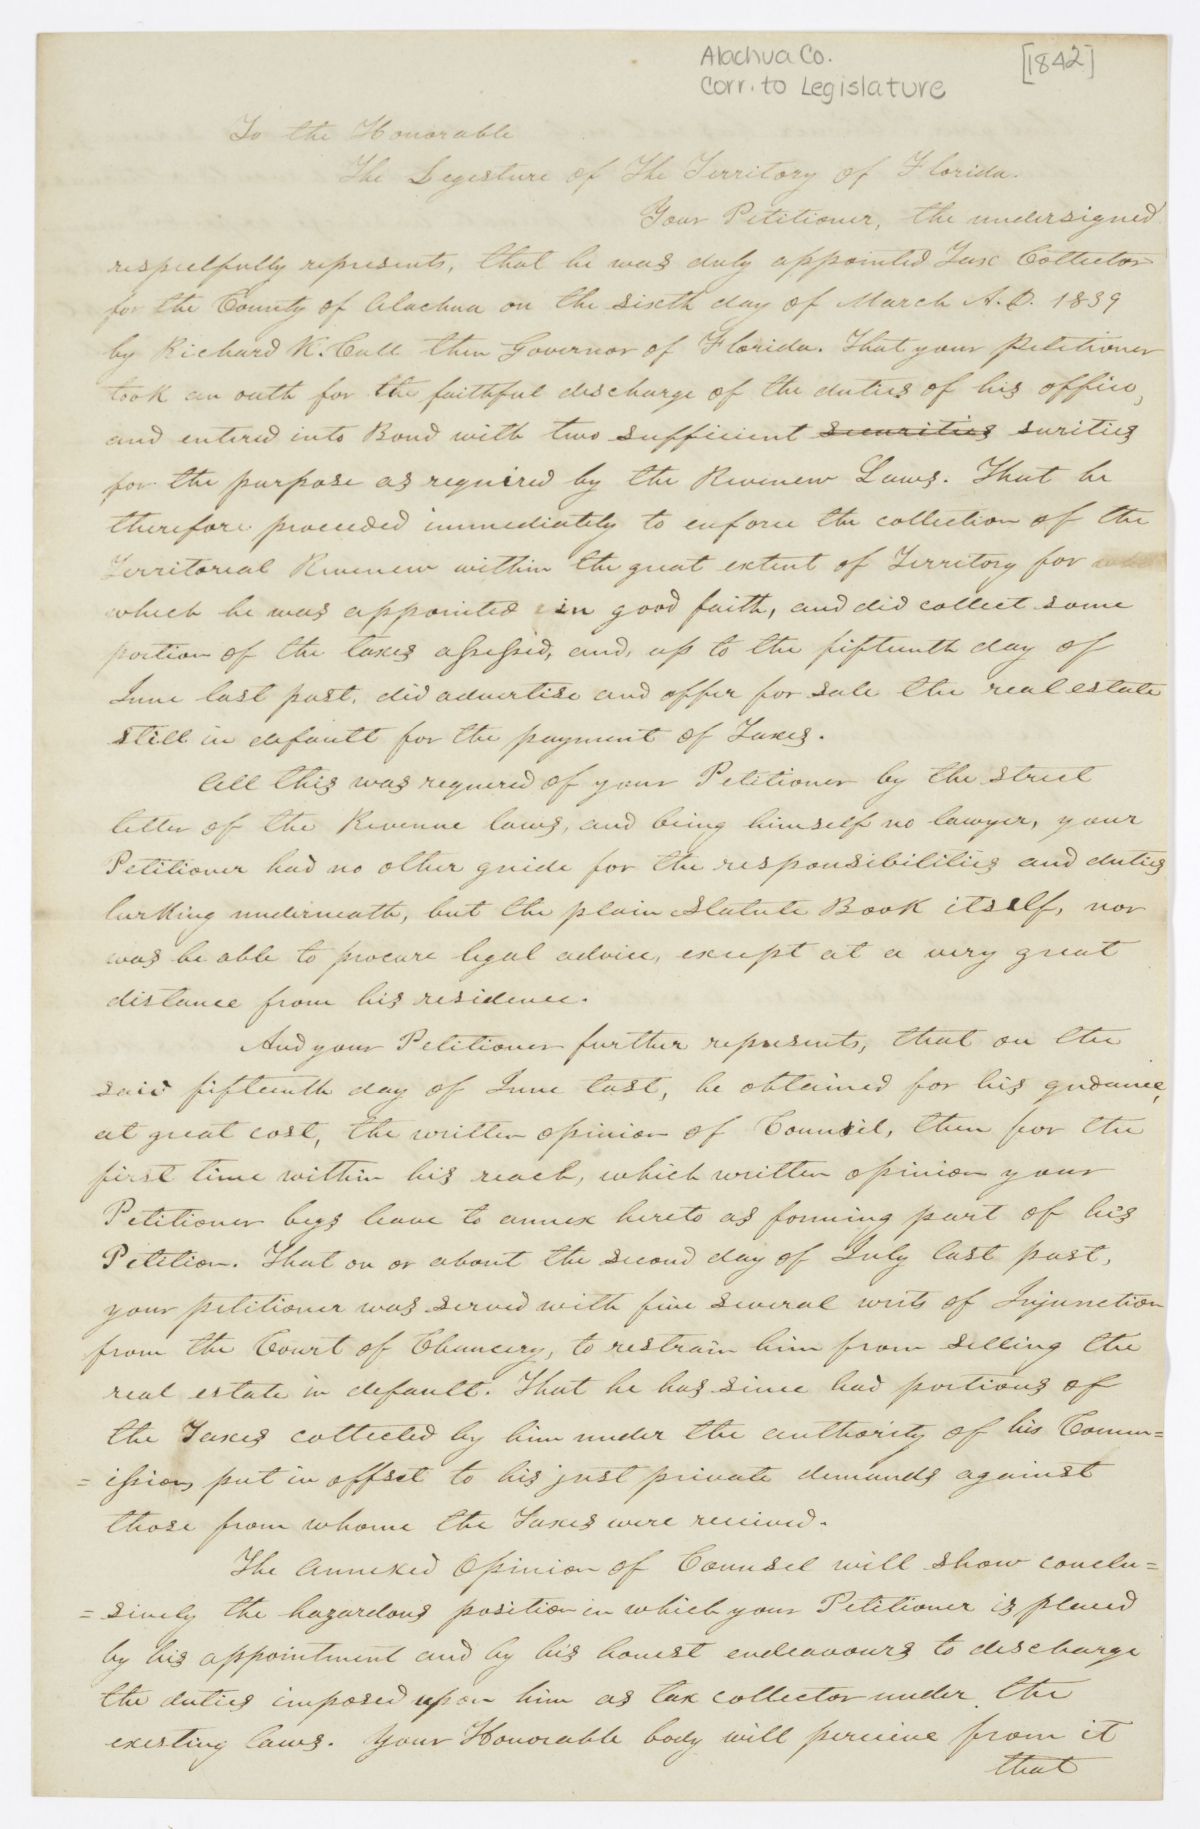 Alachua Co.
Corr. to Legislature
[1842]
To the Honorable
The Legesture of The Territory of Florida.
Your Petitioner, the undersigned
respectfully represents, that he was duly appointed Tax Collector
for the County of Alachua on the sixth day of March A.D. 1839
by Richard K. Call then Governor of Florida. That your Petitioner
took an oath for the faithful descharge of the duties of his office,
and entered into Bond with two sufficient securities surities
for the purpose as required by the Revenew Laws. That he
therefore proceeded immediately to enforce the collection of the
Territoreal Revenew within the great extent of Territory for
which he was appointed in good faith, and did collect some
portion of the taxes assessed, and, up to the fifteenth day of
June last past, did advertise and offer for sale the real estate
still in default for the payment of Taxes.
All this was requered of your Petitioner by the street
letter of the Revenue laws, and being himself no lawyer, your
Petitioner had no other guide for the responsibilities and duties
lurking underneath, but the plain Statute Book itself, nor
was he able to procure legal advice, except at a very great
distance from his residence.
And your Petitioner further represents, that on the
said fifteenth day of June last, he obtained for his gudance,
at great cost, the written opinion of Council, then for the
first time within his reach, which written opinion your
Petitioner begs leave to annex hereto as forming part of his
Petition. That on or about the second day of July last past,
your petitioner was served with five several writs of Injunction
from the Court of Chancery, to restrain him from selling the
real estate in default. That he has since had portions of
the Taxes collected by him under the authority of his Comm=
=ission put in offset to his just private demands against
those from whome the Taxes were received.
The Annexed Opinion of Counsel will show conclu=
=sively the hazardous position in which your Petitioner is placed
by his appointment and by his honest endeavours to descharge
the duties imposed upon him as tax collector under the
existing laws. Your Honorable body will percieve from it
that